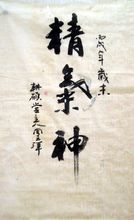 丙戌年歲末
精氣神
耕硯堂主